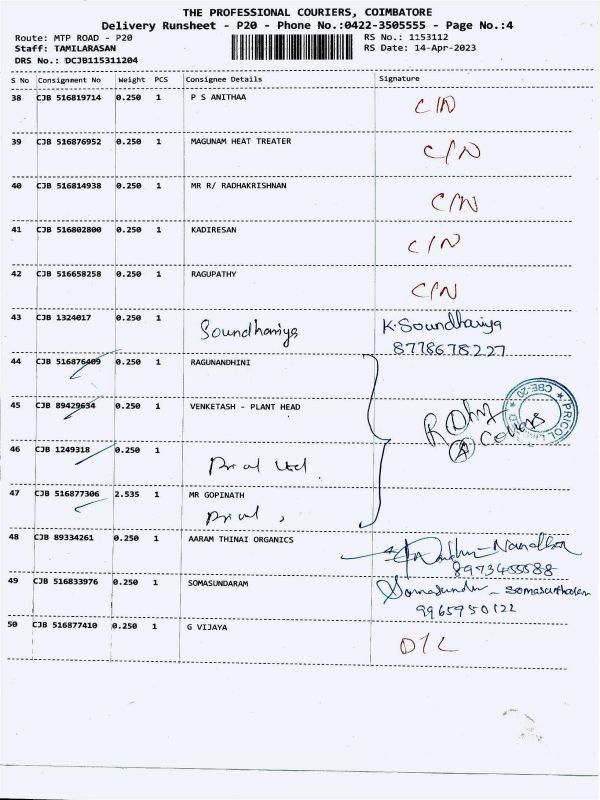 THE PROFESSIONAL COURIERS, COIMBATORE
Delivery Runsheet - P20 - Phone No.:0422-3505555 - Page No.:4
Route: MTP ROAD - P20 RS No.: 1153112
Staff: TAMILARASAN RS Date: 14-Apr-2023
DRS No.: DCJB115311204
S No Consignment No Weight PCS Consignee Details Signature
38 CJB 516819714 0.250 1 P S ANITHAA C/N
39 CJB 516876952 0.250 1 MAGUNAM HEAT TREATER C/N
40 CJB 516814938 0.250 1 MR R/ RADHAKRISHNAN C/N
41 CJB 516802800 0.250 1 KADIRESAN C/N
42 CJB 516658258 0.250 1 RAGUPATHY C/N
43 CJB 1324017 0.250 1 Soundhaniya K.Soundhaniya
8778678227
44 CJB 516876409 0.250 1 RAGUNANDHINI
45 CJB 89429634 0.250 1 VENKETASH - PLANT HEAD
PRICOL CBE-20
4 Covers
46 CJB 1249318 0.250 1
Pricol Ltd
47 CJB 516877306 2.535 1 MR GOPINATH
Pricol
48 CJB 89334261 0.250 1 AARAM THINAI ORGANICS
8973455588
49 CJB 516833976 0.250 1 SOMASUNDARAM
9965950122
50 CJB 516877410 0.250 1 G VIJAYA D/L